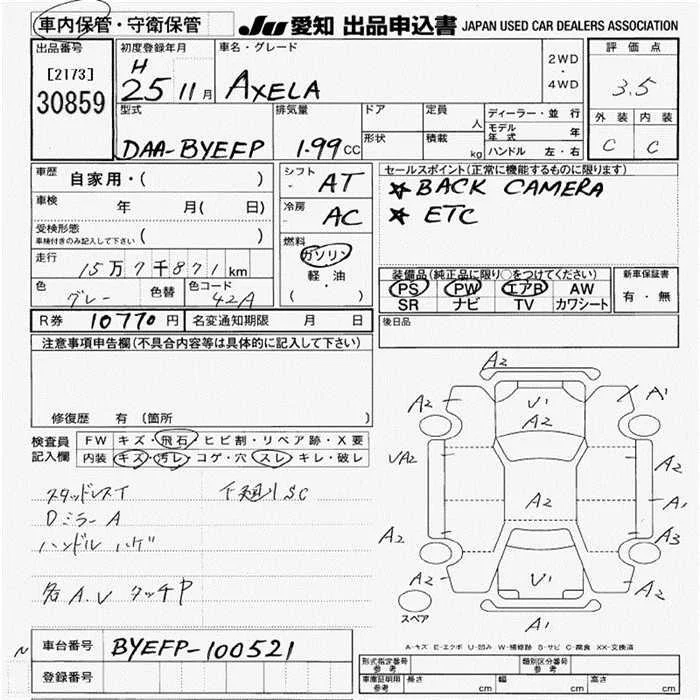 車内保管・守衛保管
JU 愛知 出品申込書 JAPAN USED CAR DEALERS ASSOCIATION
出品番号
[2173]
30859
初度登録年月
H
25 11 月
車名・グレード
AXELA
2WD
・
4WD
評価点
3.5
外装 内装
C C
型式
DAA-BYEFP
排気量
1.99 CC
ドア
形状
定員
人
積載
kg
ディーラー・並行
モデル年式 年
ハンドル 左・右
車歴 自家用・( )
車検 年 月( 日)
受検形態
車検付きのみ記入して下さい ( )
走行 15万7千871 km
色 グレー 色替 色コード 42A
シフト AT
冷房 AC
燃料
ガソリン
軽・油
( )
セールスポイント(正常に機能するものに限ります)
★ BACK CAMERA
★ ETC
装備品(純正品に限り○をつけてください)
PS PW エアB AW
SR ナビ TV カワシート
新車保証書
有・無
R券 10770 円 名変通知期限 月 日
後日品
注意事項申告欄(不具合内容等は具体的に記入して下さい)
修復歴 有 (箇所 )
検査員記入欄
FW キズ・飛石・ヒビ割・リペア跡・X要
内装 キズ・汚レ・コゲ・穴・スレ・キレ・破レ
スタッドレスT
DミラーA
ハンドル ハゲ
各A.U タッチP
A2
A2
U1
A2
A1
UA2
A2
A2
A1
A2
A3
A2
U1
A2
A1
スペア
A-キズ E-エクボ U-凹み W-補修跡 S-サビ C-腐食 XX-交換済
車台番号 BYEFP-100521
登録番号
N
形式指定番号
参考
類別区分番号
参考
車庫証明用
参考
長さ cm 幅 cm 高さ cm